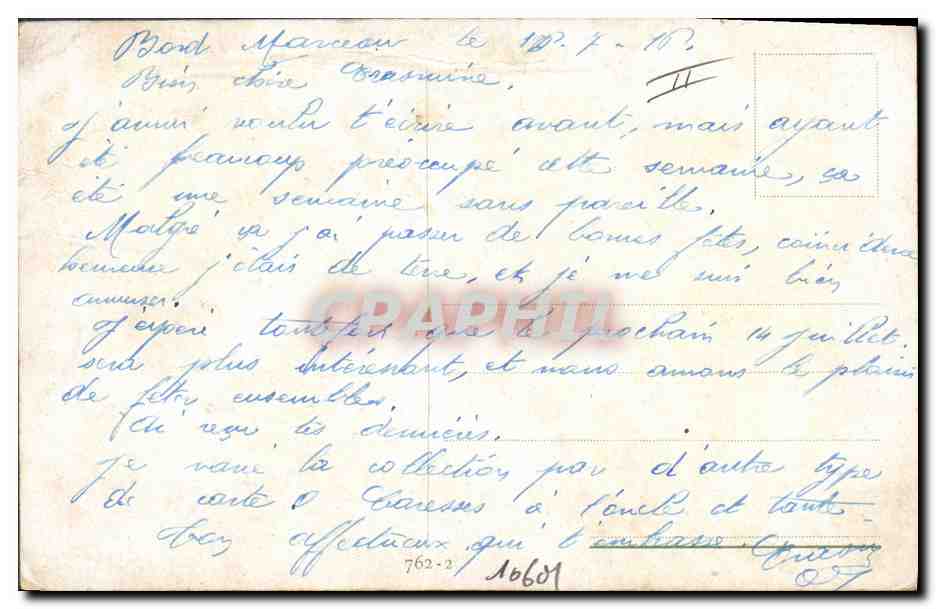 Bord Marceau le 12.7-18.
Bien chère Erasmine.
II
J'aurai voulu t'écrire avant, mais ayant
été beaucoup préoccupé cette semaine, ça
été une semaine sans pareille.
Malgré ça j'ai passer de bonnes fêtes,
j'étais de terre, et je me suis bien
amuser.
CPAPHIL
J'éspère toutefois que le prochain 14 juillet.
sera plus intéressant, et nous aurons le plaisir
de fêter ensembles.
Ai reçu tes dernières.
Je varie la collection par d'autre type
de carte Caresses à l'oncle et tante
Ton affectueux qui t'embrasse.
762-2
10601